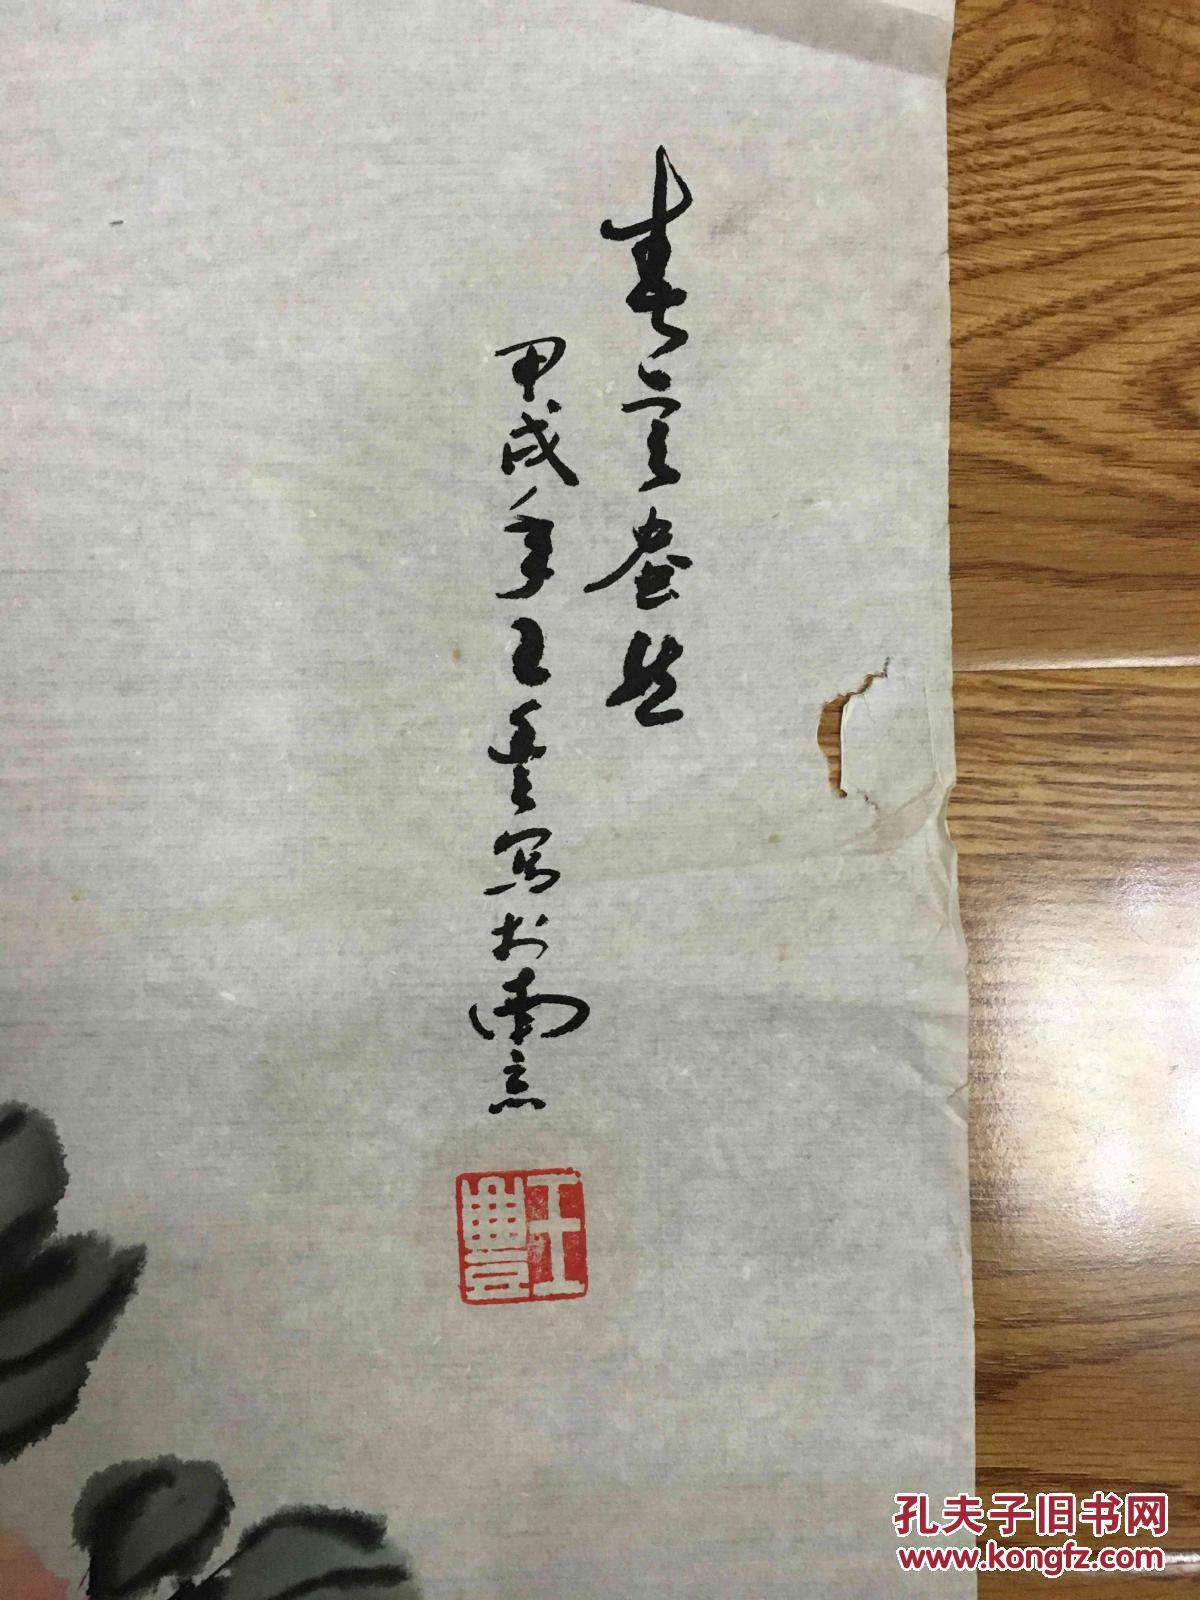 春宫盎然
甲戌年王丰写于南京
王豐
孔夫子旧书网
www.kongfz.com